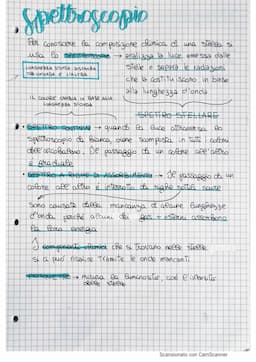 Spettroscopio
Per conoscere la composizione chimica di una stella si
usa lo spettroscopio → analizza la luce emessa dalle
stelle e separa le radiazioni
che la costituiscono in base
alla lunghezza d'onda
LUNGHEZZA D'ONDA: DISTANZA
TRA UN'ONDA E L'ALTRA
IL COLORE CAMBIA IN BASE ALLA
LUNGHEZZA D'ONDA
SPETTRO STELLARE
• SPETTRO CONTINUO → quando la luce attraversa lo
spettroscopio di bianca, viene scomposta in tutti i colori
dell'arcobaleno. Il passaggio di un colore all'altro
è graduale
• SPETTRO A RIGHE DI ASSORBIMENTO → Il passaggio di un
colore all'altro è interrotto da righe sottili nere
Sono causate dalla mancanza di alcune lunghezze
d'onda perché alcuni dei gas esterni assorbono
la loro energia
I componenti chimici che si trovano nelle stelle
si può risalire tramite le onde mancanti
→ misura la luminosità, cioè l'intensità
delle stelle
Scansionato con CamScanner